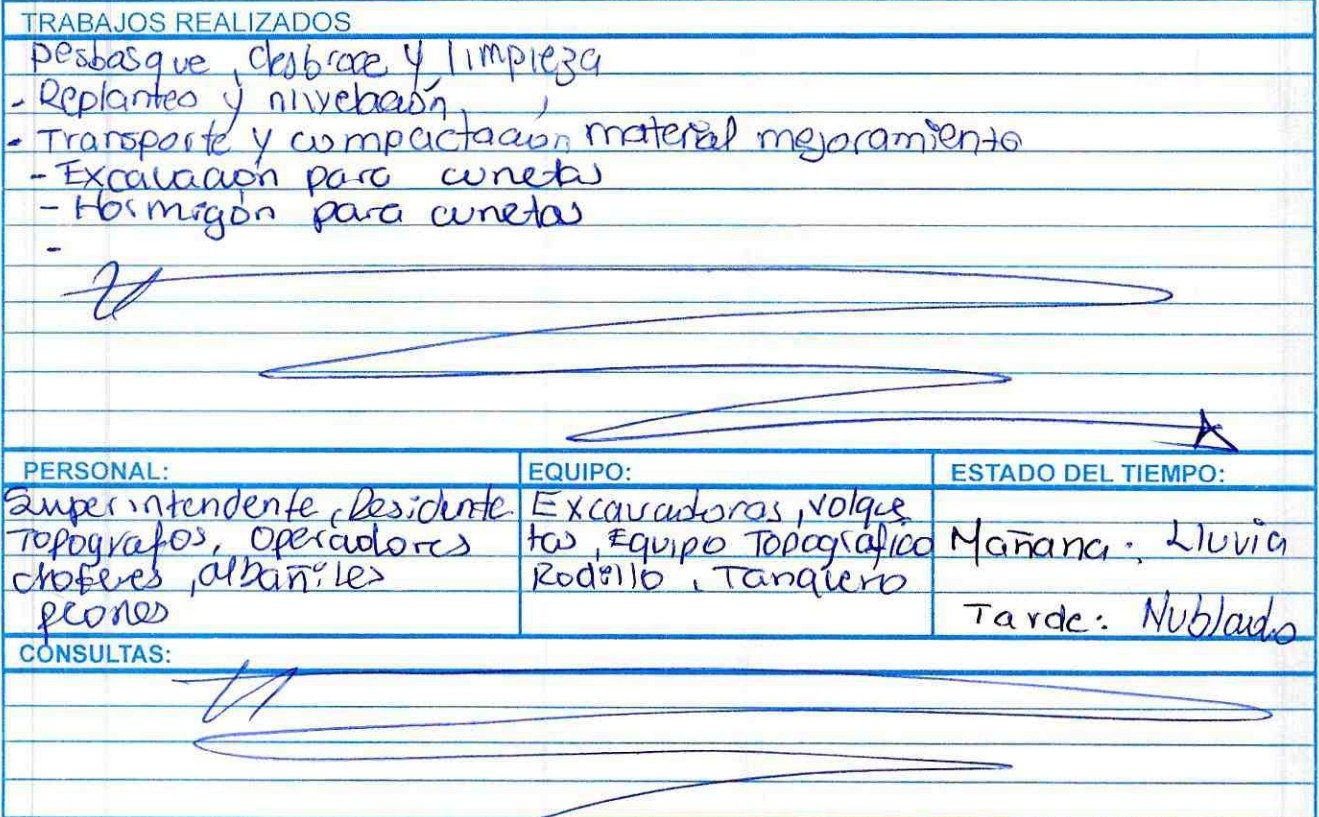 TRABAJOS REALIZADOS
Desbosque, desbroce y limpieza
- Replanteo y nivelación
- Transporte y compactación material mejoramiento
- Excavación para cunetas
- Hormigón para cunetas
-
PERSONAL:
Superintendente, Residente
Topografos, Operadores
choferes, albañiles
peones
EQUIPO:
Excavadoras, volque
tas, Equipo Topográfico
Rodillo, Tanquero
ESTADO DEL TIEMPO:
Mañana: Lluvia
Tarde: Nublado
CONSULTAS: